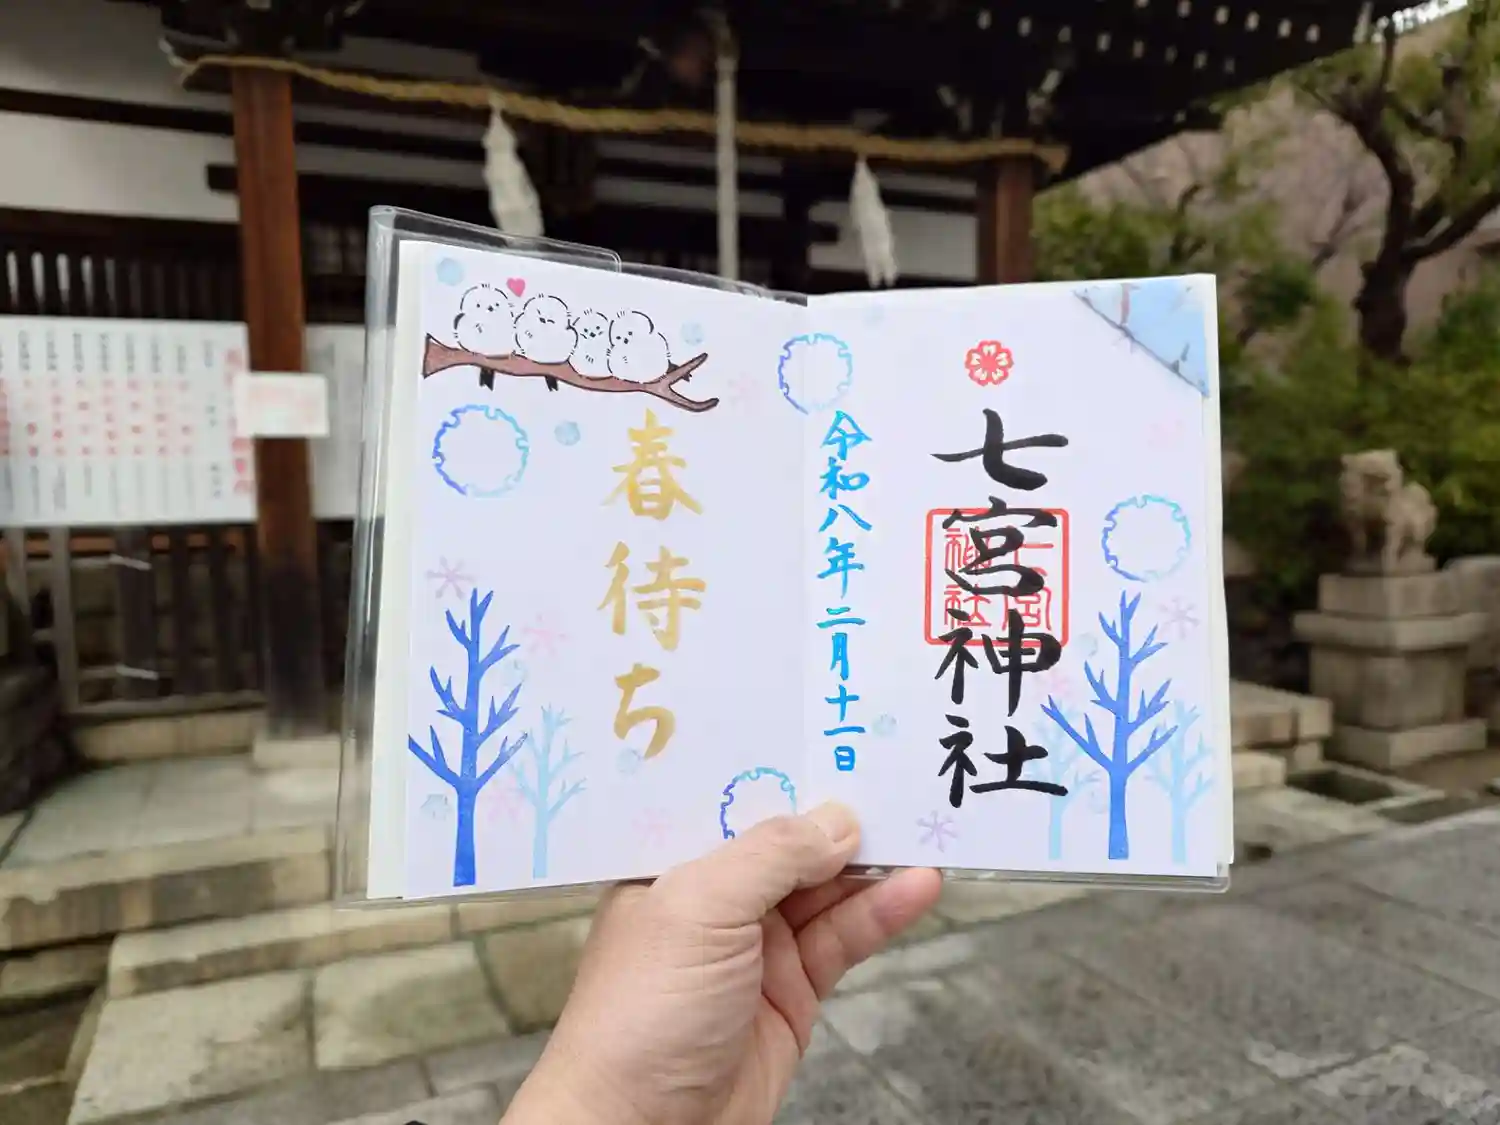 七宮神社
七宮神社
令和八年二月十一日
春待ち